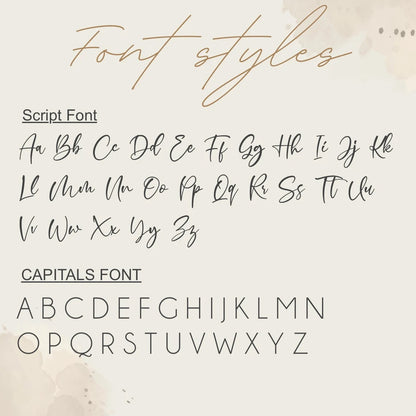 Font styles
Script Font
Aa Bb Cc Dd Ee Ff Gg Hh Ii Jj Kk
Ll Mm Nn Oo Pp Qq Rr Ss Tt Uu
Vv Ww Xx Yy Zz
CAPITALS FONT
A B C D E F G H I J K L M N
O P Q R S T U V W X Y Z